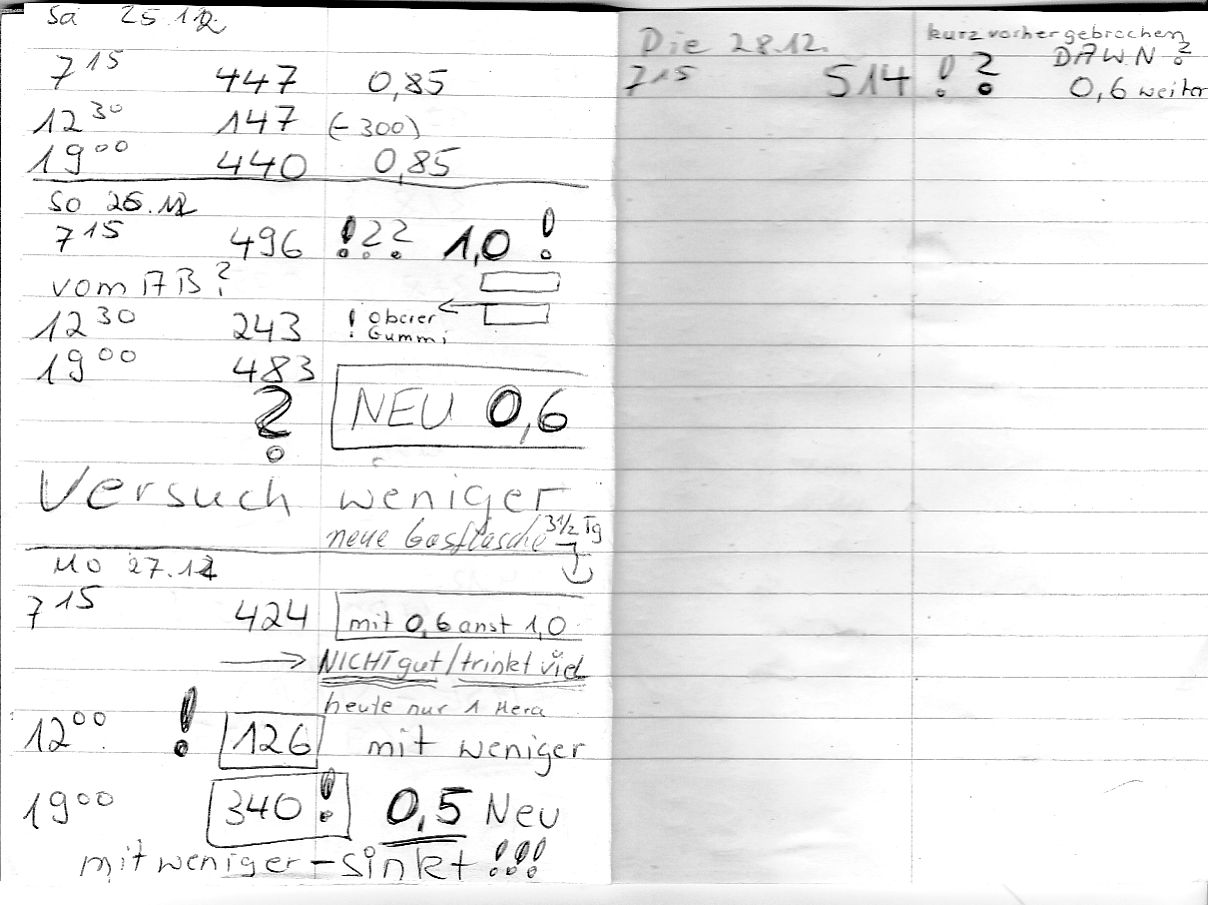 Sa 25.12.
7 15 447 0,85
12 30 147 (-300)
19 00 440 0,85
So 26.12
7 15 496 !?? 1,0 !
vom AB?
12 30 243 ! oberer
Gummi
19 00 483
? NEU 0,6
Versuch weniger
neue Gasflasche 3 1/2 Tg
Mo 27.12
7 15 424 mit 0,6 anst 1,0
→ NICHT gut / trinkt viel
heute nur 1
12 00 ! 126 mit weniger
19 00 340 ! 0,5 Neu
mit weniger - sinkt !!!
Die 28.12. kurz vorher gebrochen
DAWN ?
7 15 514 ! ? 0,6 weiter